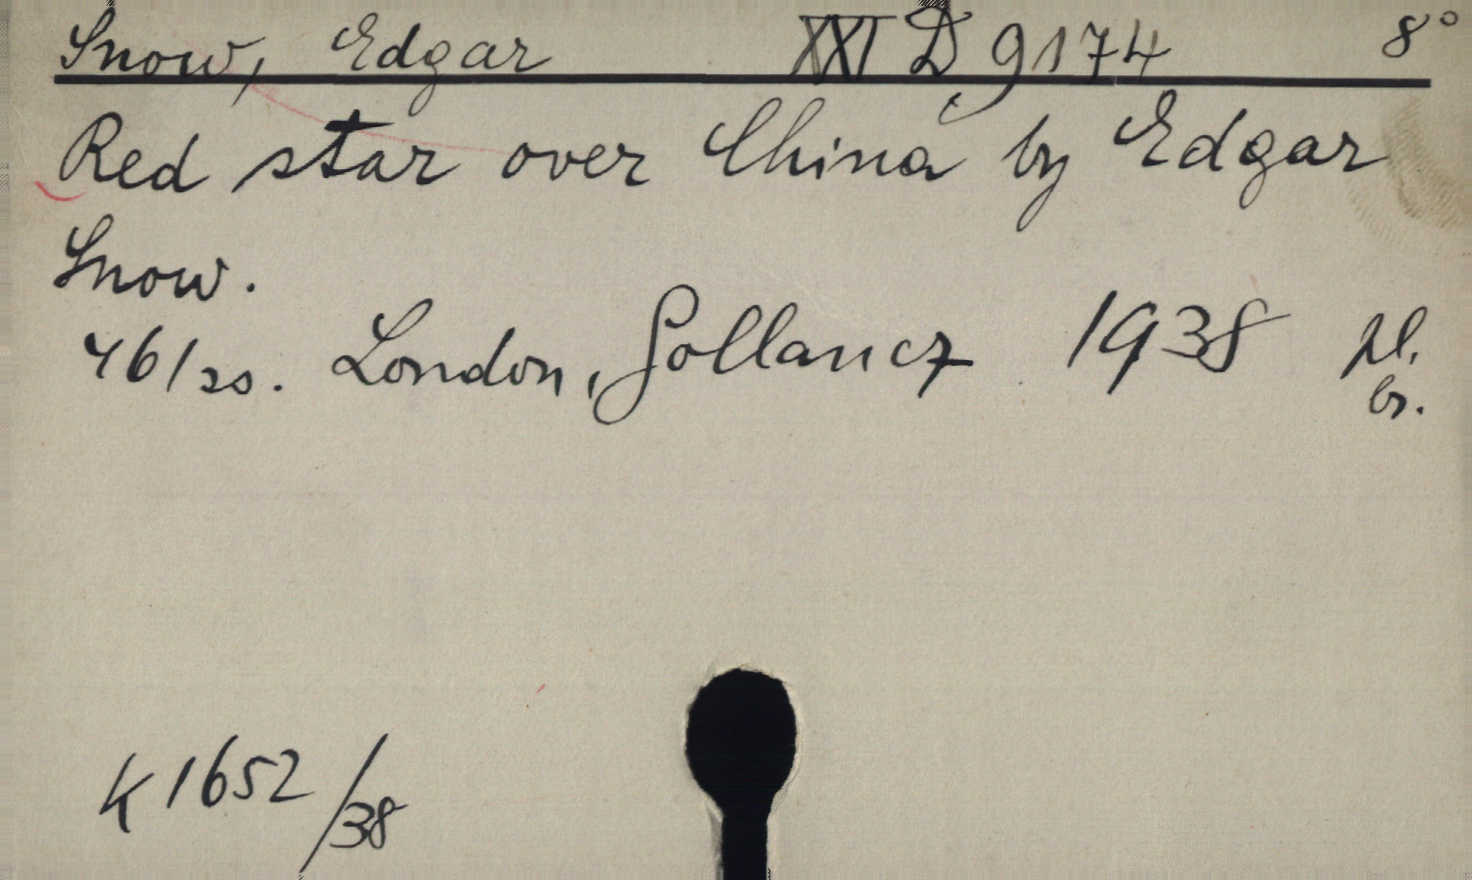 Snow, Edgar XXI D 9174 8°
Red star over China by Edgar
Snow.
46/20. London, Gollancz 1938 pl.
br.
K 1652/38